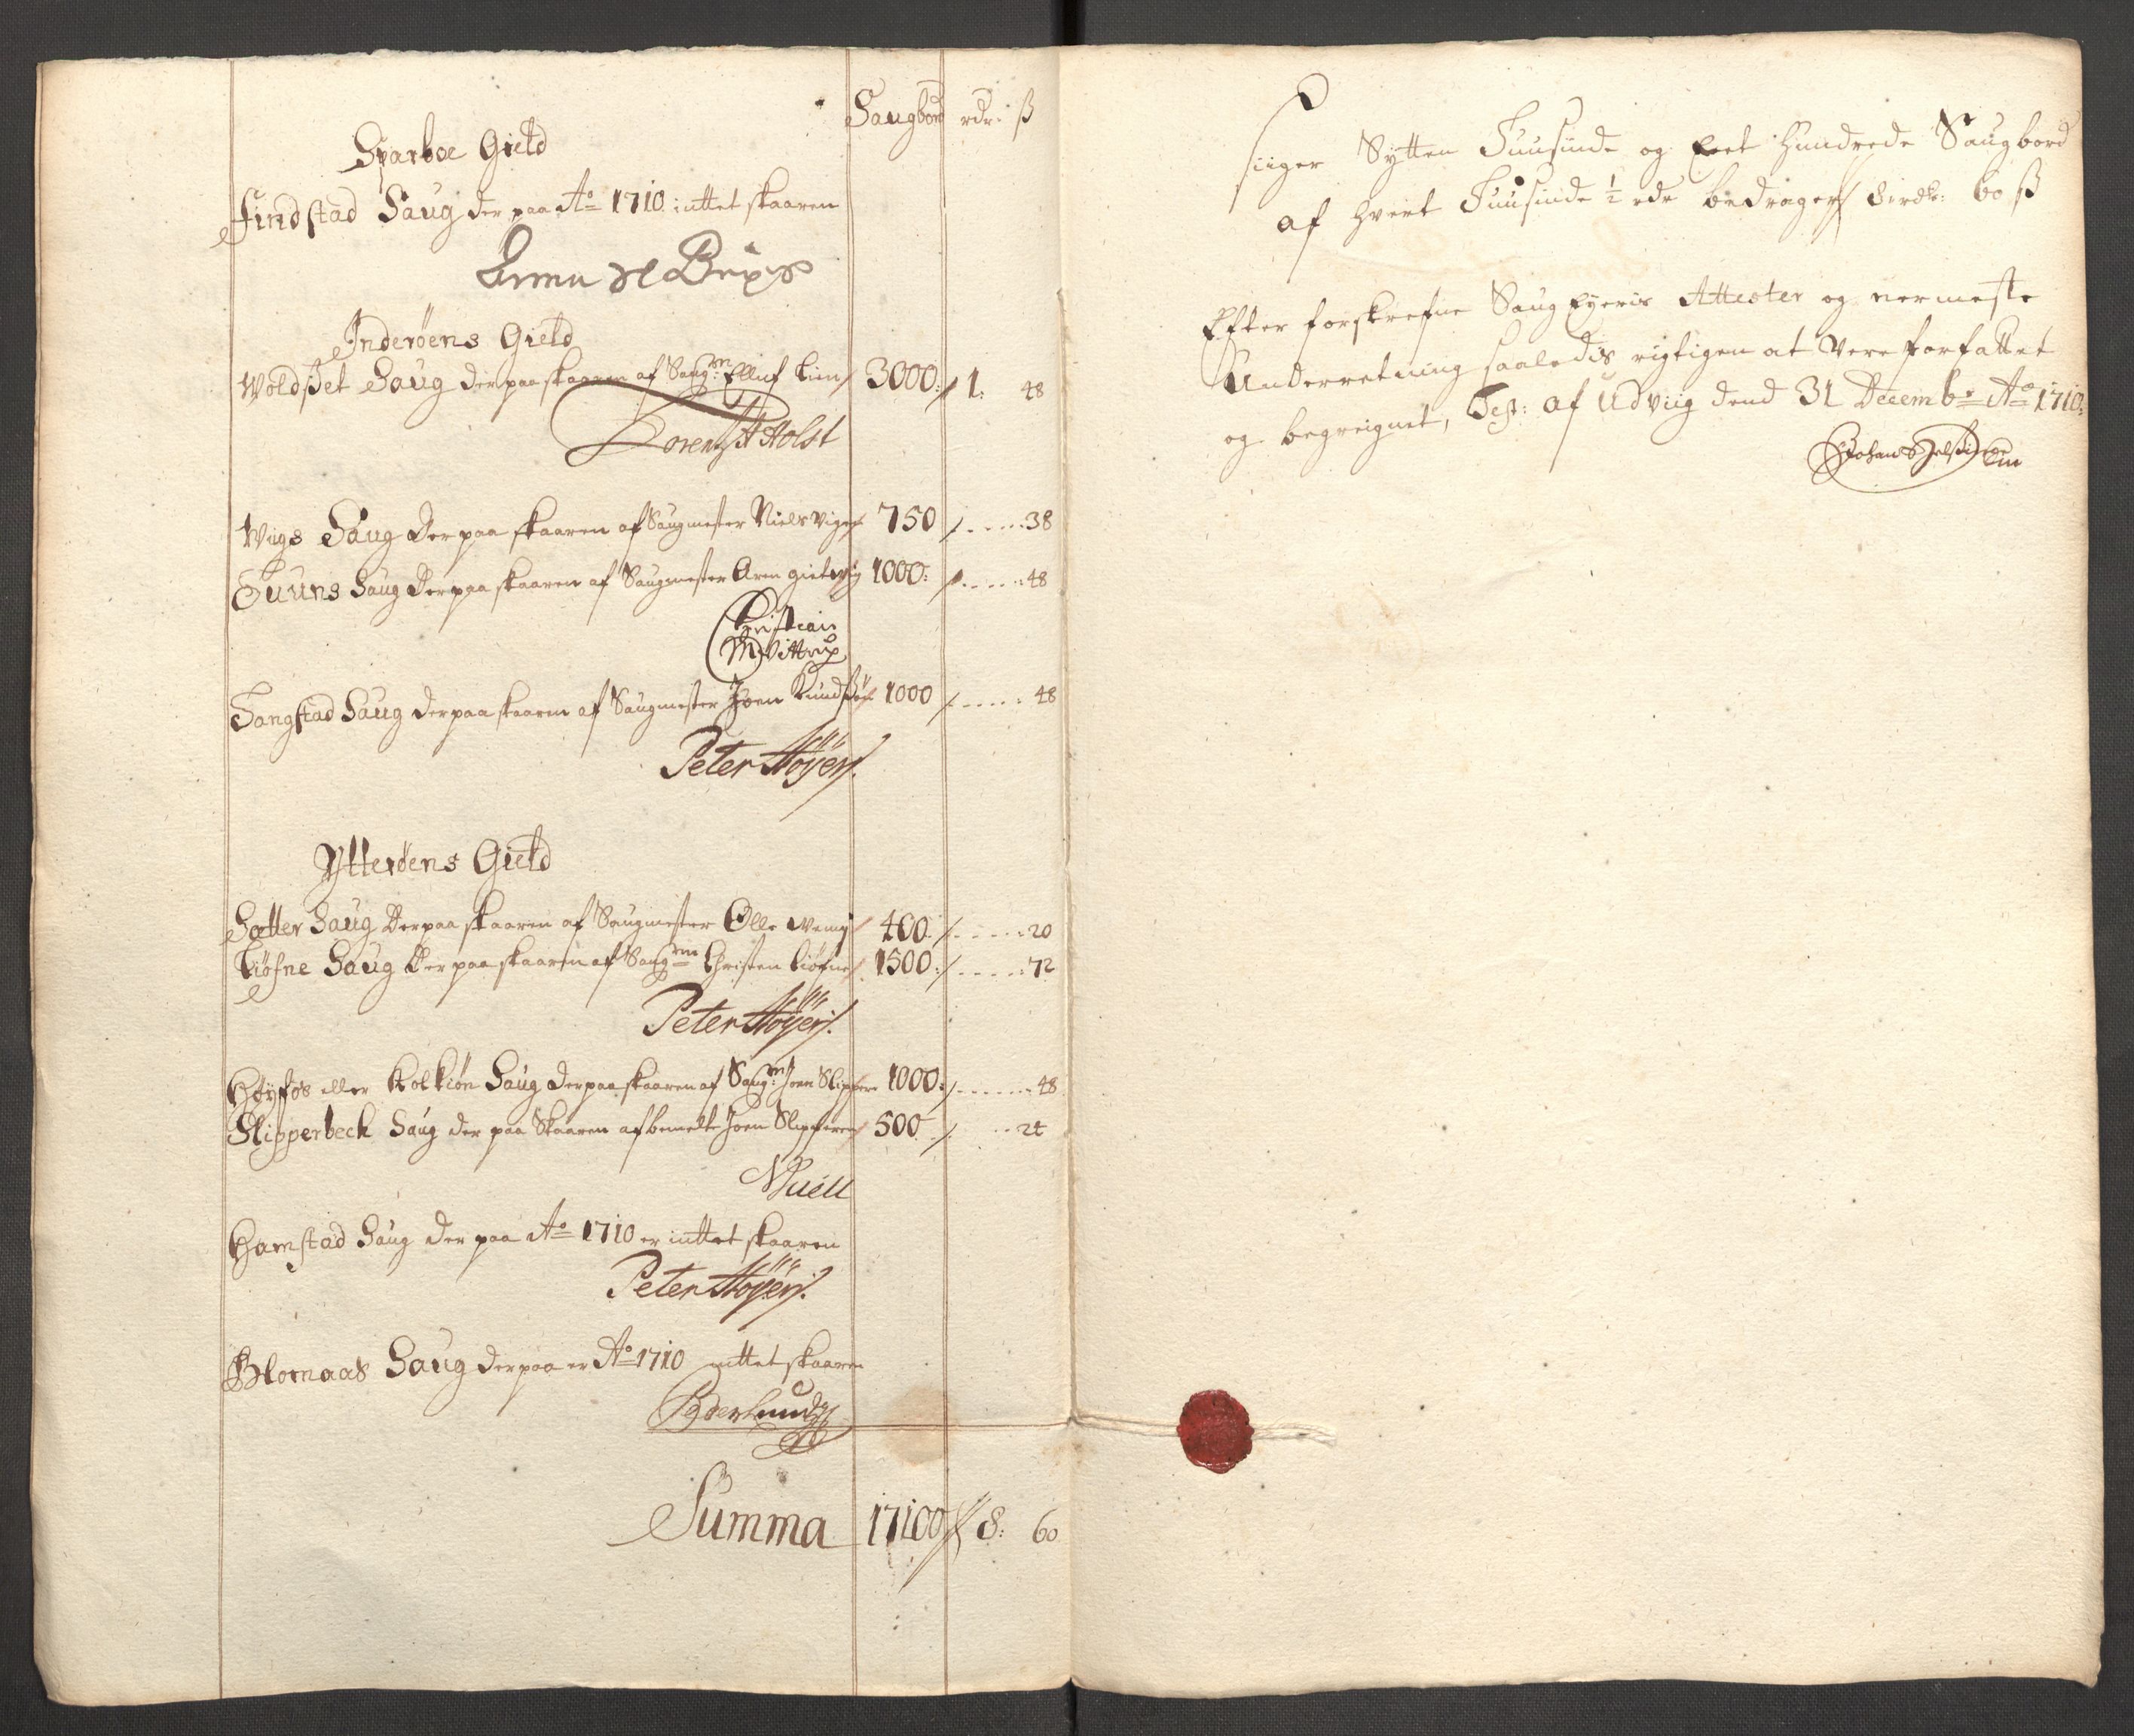 Saugbord rdr: ß
Sparboe Gield
Findstad Saug der paa Ao 1710 inttet skaaren
Inderöens Gield
Woldset Saug der paa skaaren af Saugm: Elluf Lien 3000: 1: 48
Lorentz A Holst
Wigs Saug Der paa skaaren af Saugmester Niels Viger 750 38
Tuuns Saug Der paa skaaren af Saugmester Aren 1000: 48
Christian
M Vittrup
Sangstad Saug der paa skaaren af Saugmester Joen 1000 48
Peter Höyer
Ytteröens Gield
Sætter Saug Der paa skaaren af Saugmester Olle 400 20
Kiöfne Saug Der paa skaaren af Saugm Christen Kiöfne 1500: 72
Peter Höyer
Höyfos eller Holkiön Saug der paa skaaren af Saugm: Joen Slipper 1000: 48
Slipperbeck Saug der paa Skaaren af bemelte Joen Slipperen 500 24
Hamstad Saug der paa Ao 1710 er inttet skaaren
Peter Höyer
Blomaas Saug der paa er Ao 1710 inttet skaaren
Summa 17100 8: 60
siiger Sytten Tuusinde og Eet Hundrede Saugbord
af hvert Tuusinde ½ rdr bedrager 8 rdr: 60 ß
Efter forskrefne Saug Eyeris Attester og nermeste
Underretning saaledis rigtigen at Vere forfattet
og begreignet, Test: af Udviig dend 31 Decembr Ao 1710: